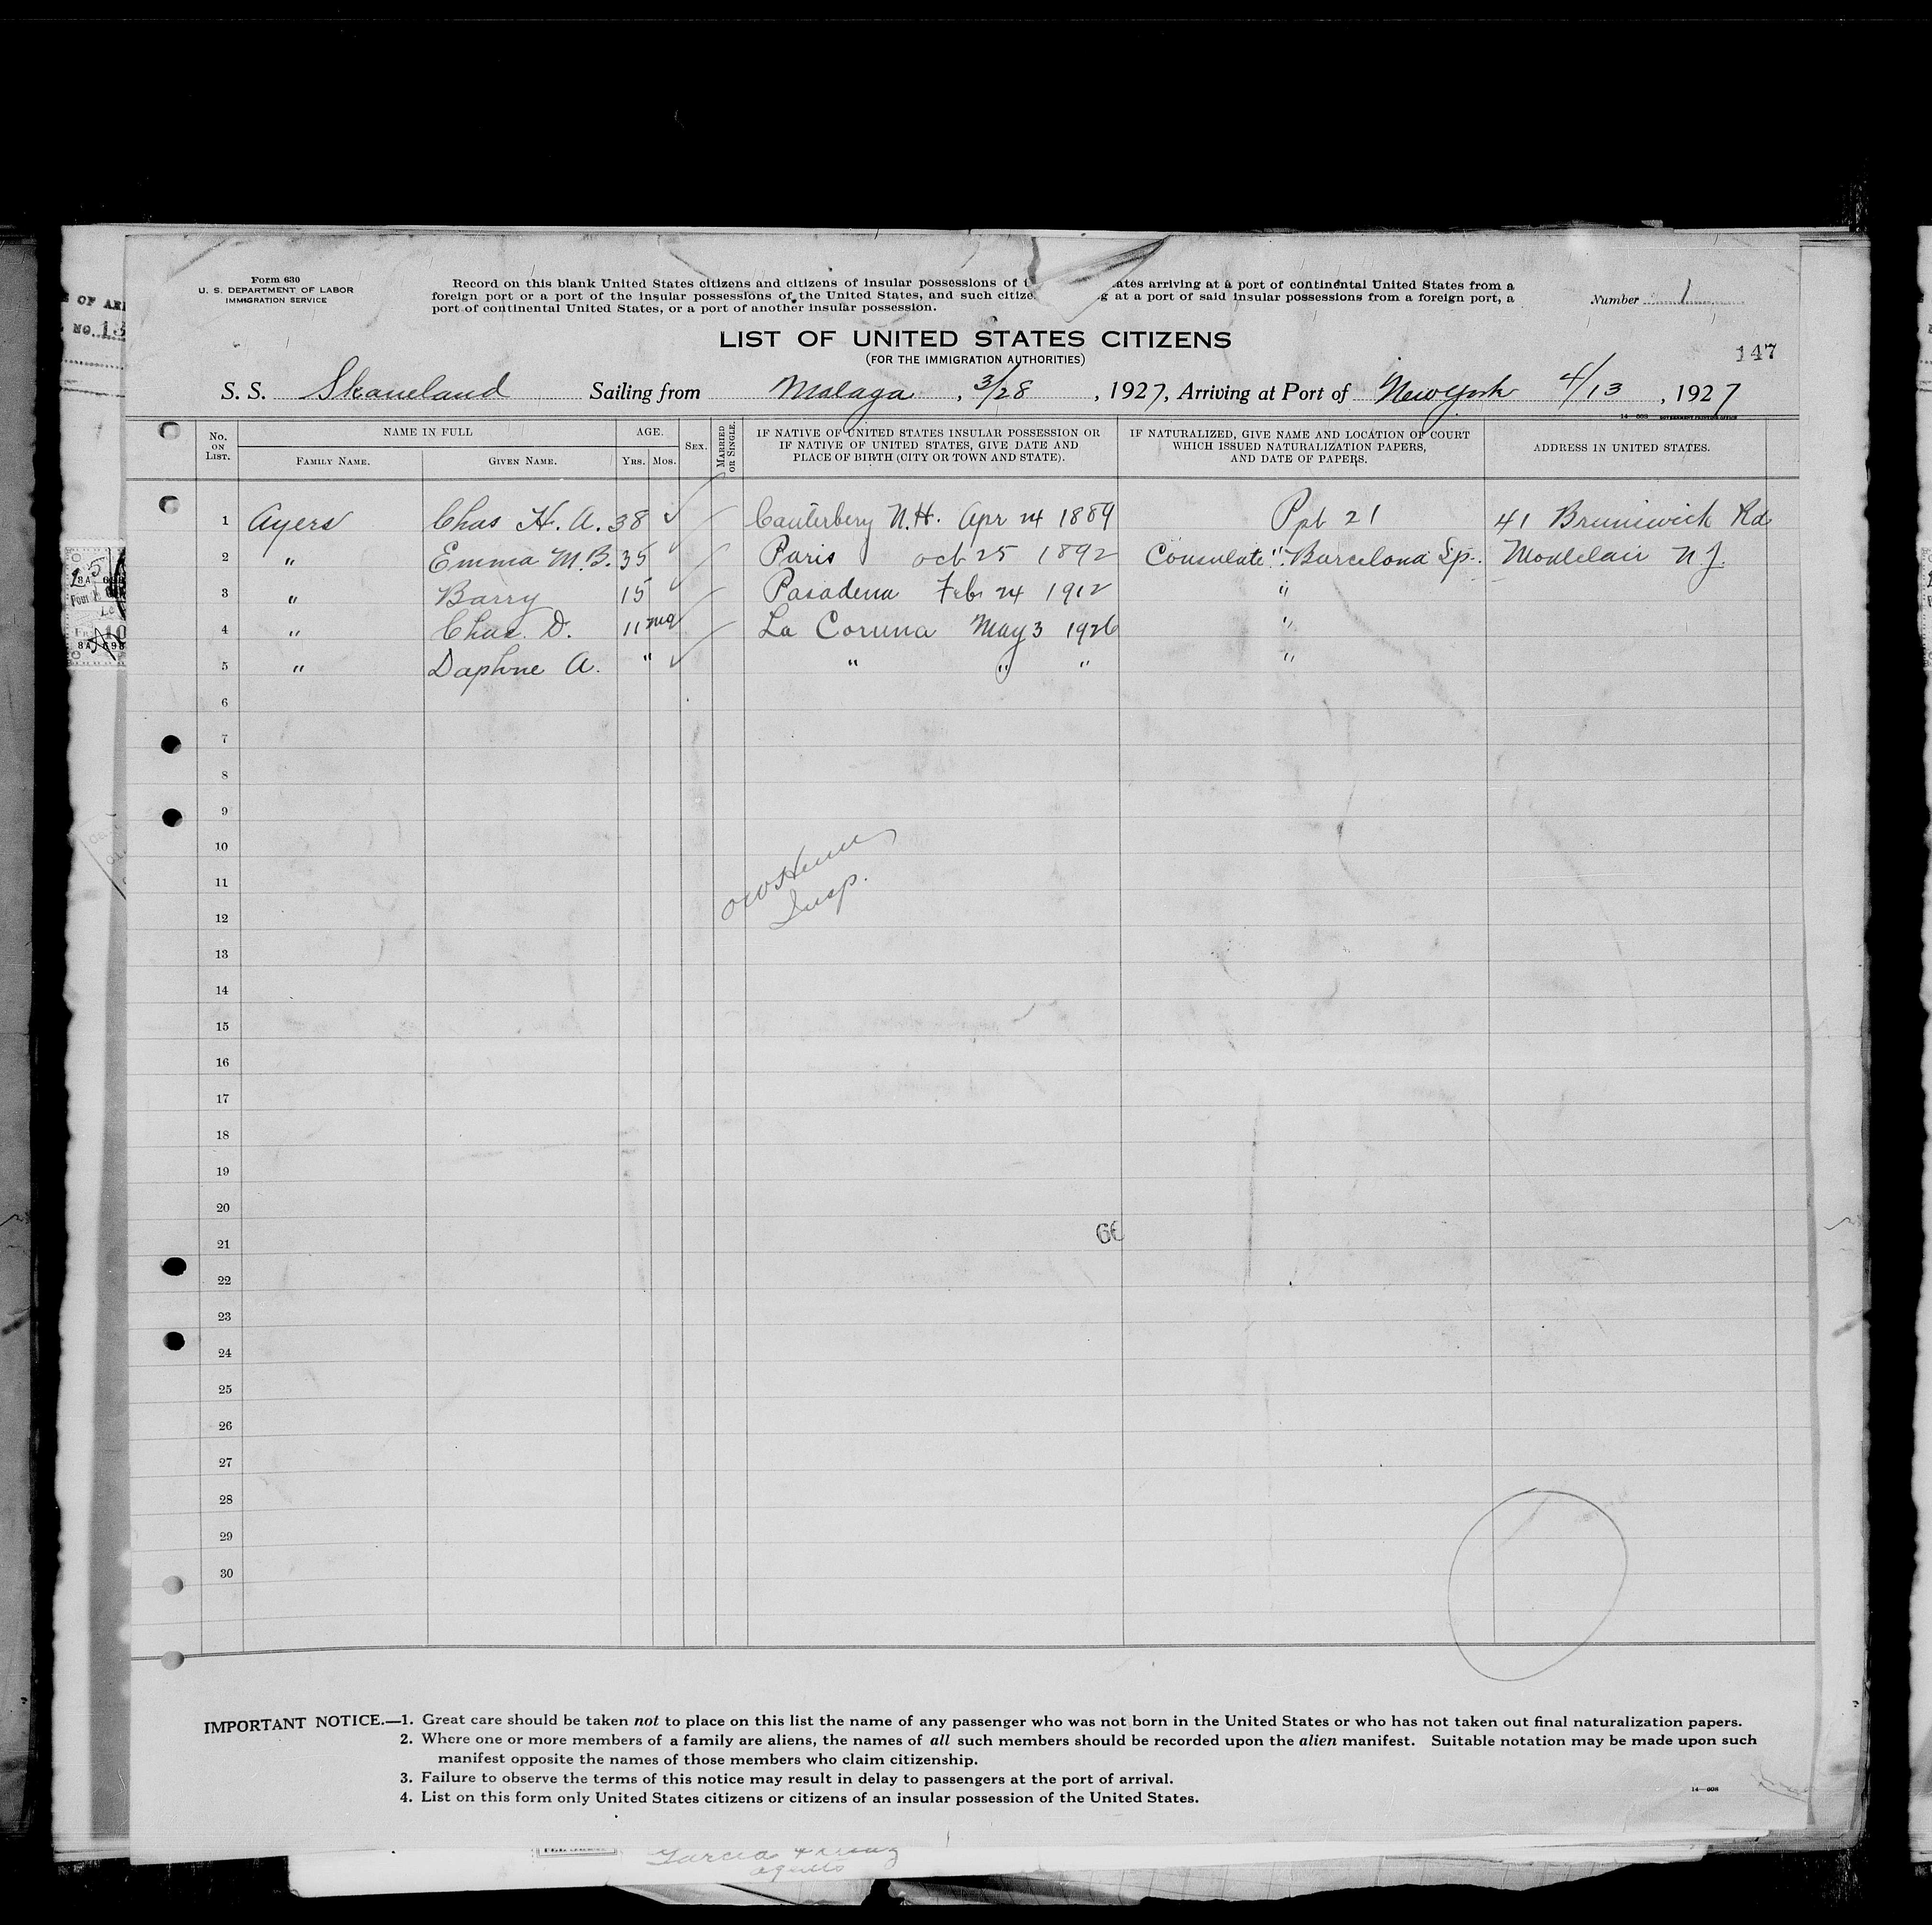 Form 630
U. S. DEPARTMENT OF LABOR
IMMIGRATION SERVICE
Record on this blank United States citizens and citizens of insular possessions of ates arriving at a port of continental United States from a
foreign port or a port of the insular possessions of the United States, and such citize g at a port of said insular possessions from a foreign port, a
port of continental United States, or a port of another insular possession.
Number 1
LIST OF UNITED STATES CITIZENS
(FOR THE IMMIGRATION AUTHORITIES)
147
S. S. Skaneland Sailing from Malaga , 3/28 , 1927, Arriving at Port of New York 4/13 , 1927
14—608 GOVERNMENT PRINTING OFFICE
No. ON LIST. NAME IN FULL AGE. SEX. MARRIED OR SINGLE. IF NATIVE OF UNITED STATES INSULAR POSSESSION OR IF NATIVE OF UNITED STATES, GIVE DATE AND PLACE OF BIRTH (CITY OR TOWN AND STATE). IF NATURALIZED, GIVE NAME AND LOCATION OF COURT WHICH ISSUED NATURALIZATION PAPERS, AND DATE OF PAPERS. ADDRESS IN UNITED STATES.
FAMILY NAME. GIVEN NAME. YRS. MOS.
1 Ayers Chas H. A. 38 Canterbery N.H. Apr 24 1889 Ppt 21 41 Brunswick Rd
2 " Emma M. B. 35 Paris oct 25 1892 Consulate " Barcelona Sp. Montclair N J.
3 " Barry 15 Pasadena Feb 24 1912 "
4 " Chas. D. 11 mo La Coruna May 3 1926 "
5 " Daphne A. " " " " "
6
7
8
9
10
11
12
Insp.
13
14
15
16
17
18
19
20
21
22
23
24
25
26
27
28
29
30
IMPORTANT NOTICE.—1. Great care should be taken not to place on this list the name of any passenger who was not born in the United States or who has not taken out final naturalization papers.
2. Where one or more members of a family are aliens, the names of all such members should be recorded upon the alien manifest. Suitable notation may be made upon such
manifest opposite the names of those members who claim citizenship.
3. Failure to observe the terms of this notice may result in delay to passengers at the port of arrival.
4. List on this form only United States citizens or citizens of an insular possession of the United States.
14—608